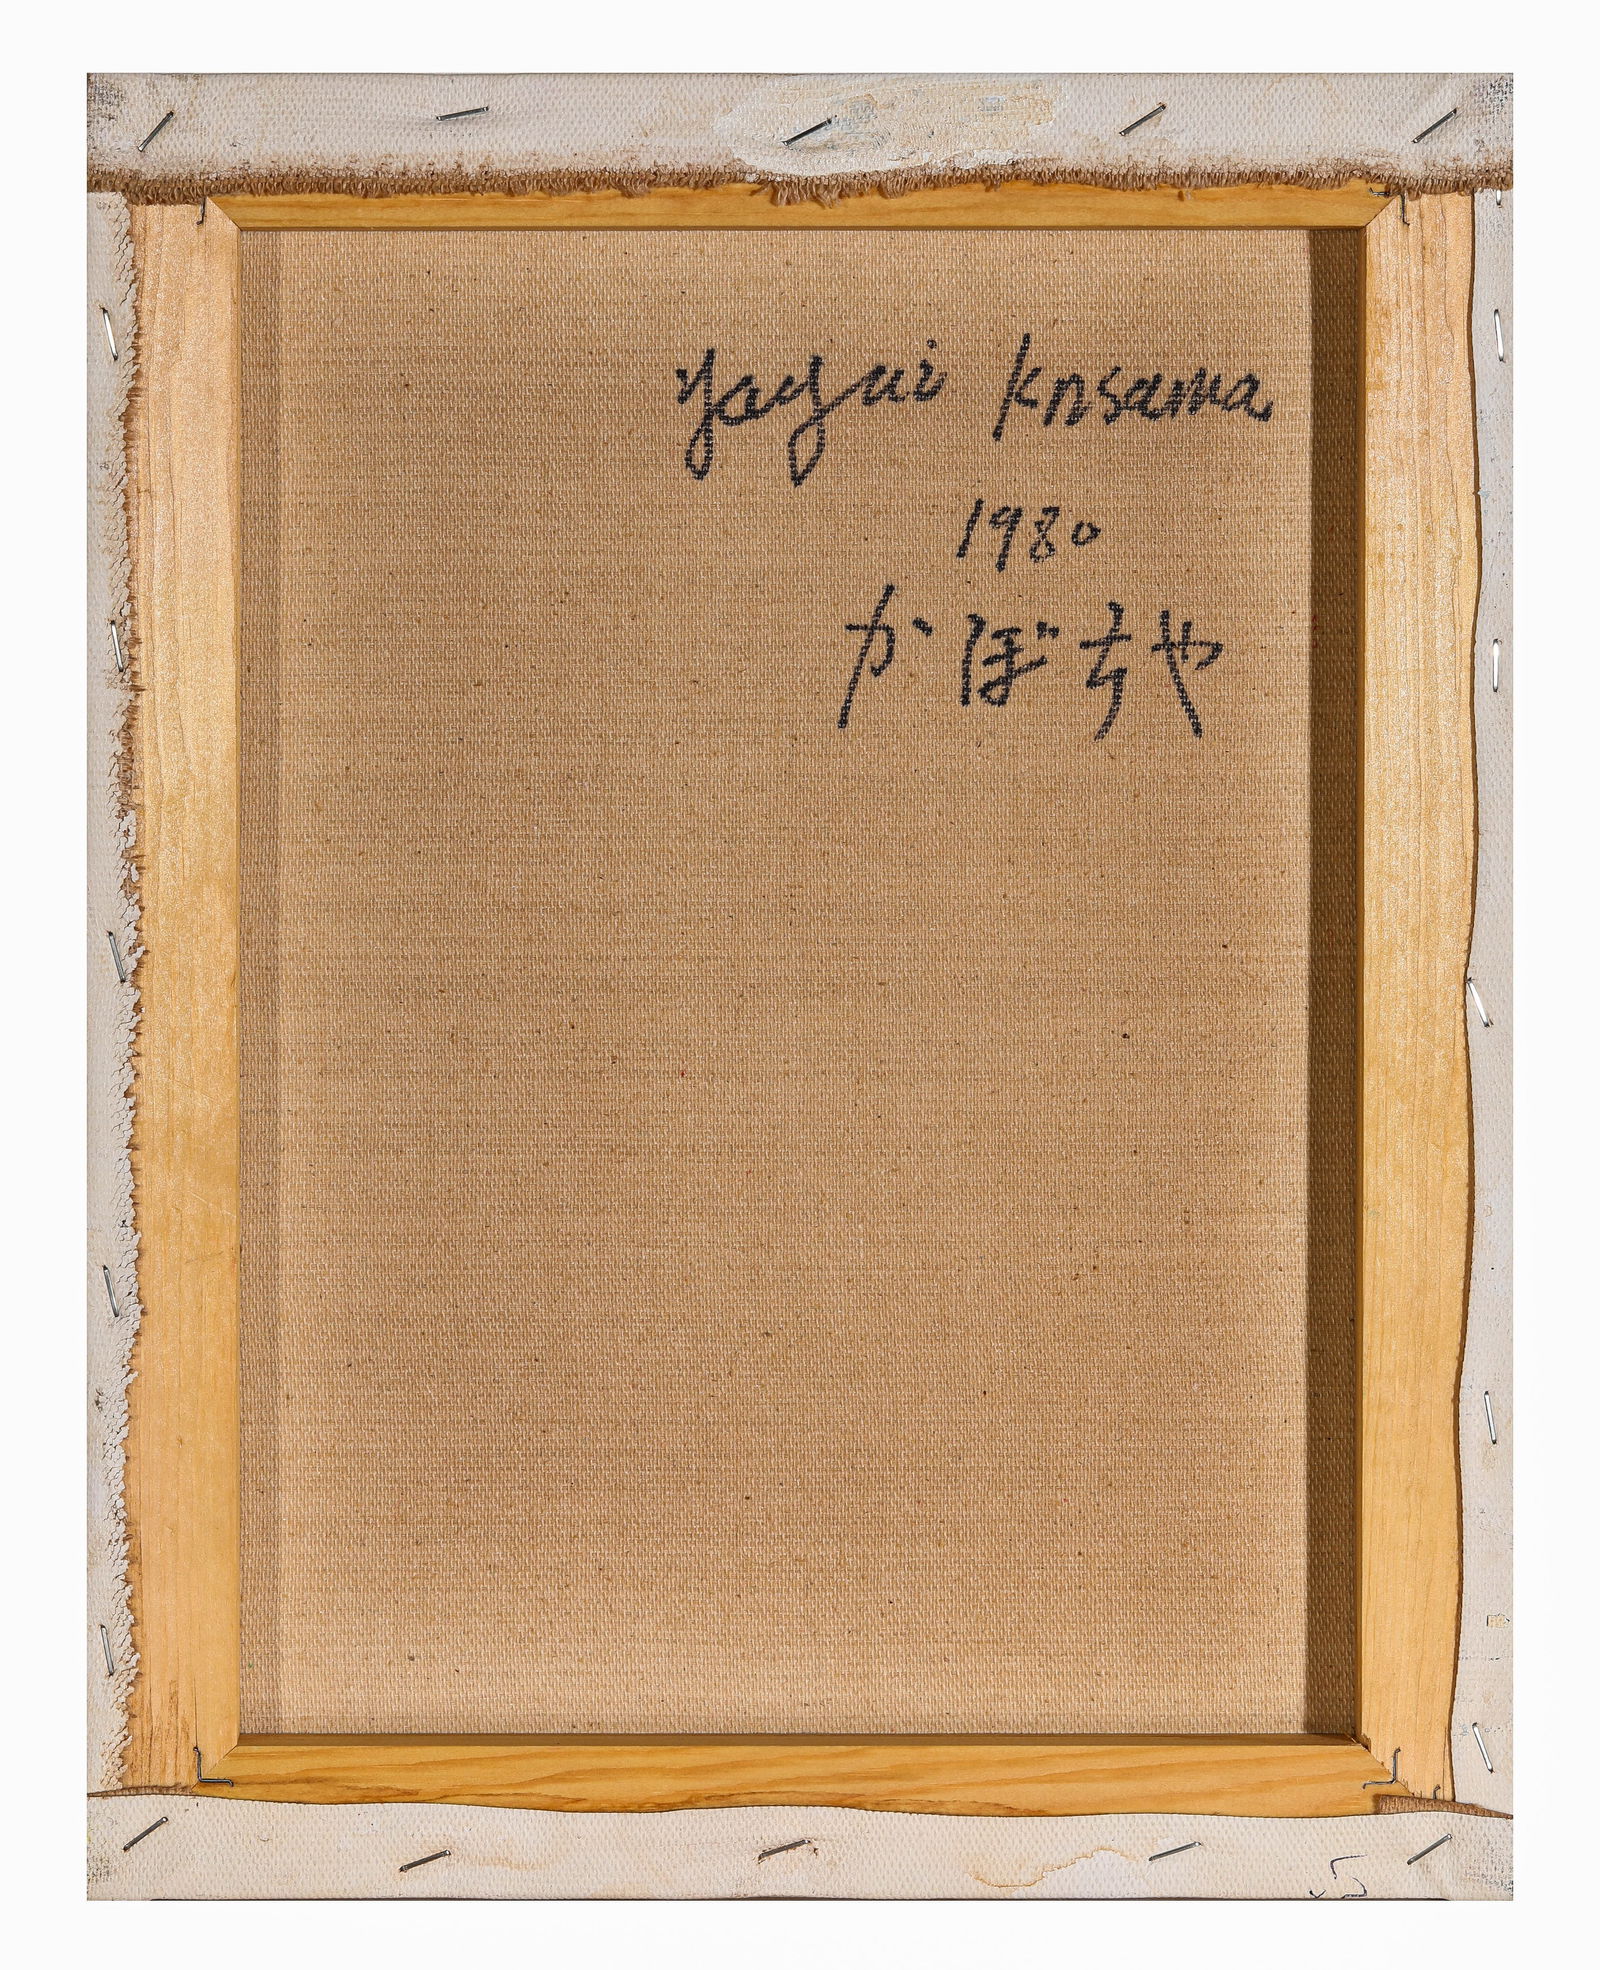 Yayoi Kusama
1980
かぼちや